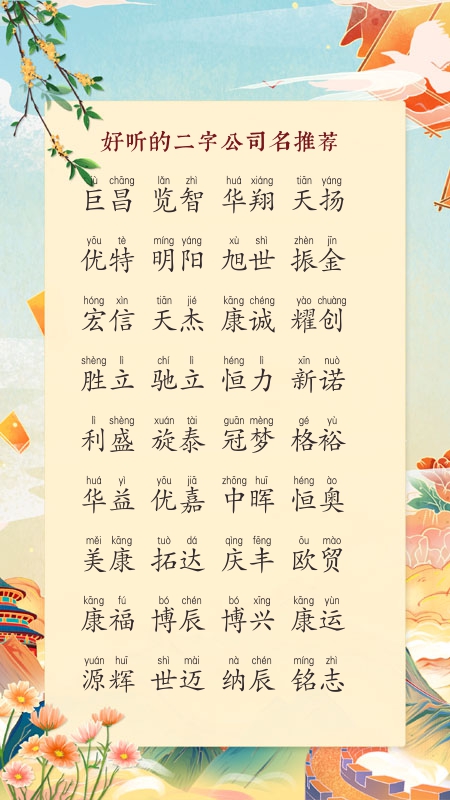 好听的二字公司名推荐
jù chāng lǎn zhì huá xiáng tiān yáng
巨昌 览智 华翔 天扬
yōu tè míng yáng xù shì zhèn jīn
优特 明阳 旭世 振金
hóng xìn tiān jié kāng chéng yào chuàng
宏信 天杰 康诚 耀创
shèng lì chí lì héng lì xīn nuò
胜立 驰立 恒力 新诺
lì shèng xuán tài guān mèng gé yù
利盛 旋泰 冠梦 格裕
huá yì yōu jiā zhōng huī héng ào
华益 优嘉 中晖 恒奥
měi kāng tuò dá qìng fēng ōu mào
美康 拓达 庆丰 欧贸
kāng fú bó chén bó xīng kāng yùn
康福 博辰 博兴 康运
yuán huī shì mài nà chén míng zhì
源辉 世迈 纳辰 铭志